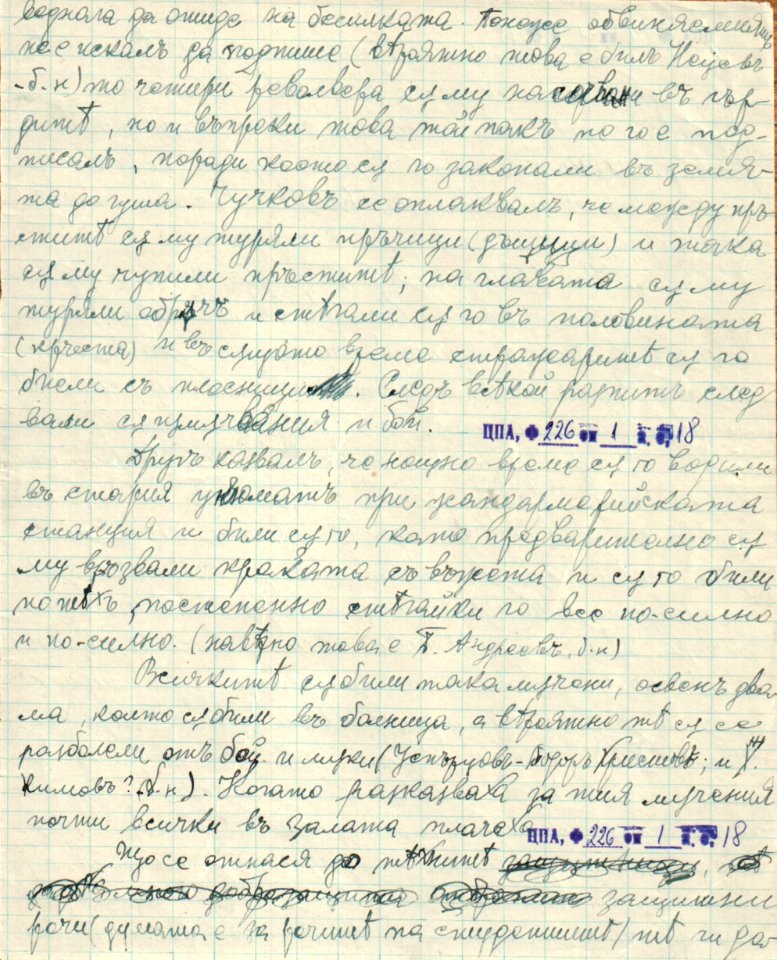 веднага да отиде на бесилката. Понеже обвиняемия
не е искалъ да подпише (вѣроятно това е билъ
-б.н) то четири револвера сѫ му насочвани въ гър-
дитѣ, но и въпреки това той пакъ не го е под-
писалъ, поради което сѫ го закопали въ земя-
та до гуша. Чучковъ се оплаквалъ, че между пръ-
ститѣ сѫ му туряли пръчици (дъщици) и така
сѫ му чупили пръститѣ; на главата сѫ му
туряли обрѫчъ и стѣгали сѫ го въ половината
(кръста) и въ сѫщото време стражаритѣ сѫ го
биели съ плесници. Следъ всѣкой разпитъ след
вали сѫ измѫчвания и бой.
ЦПА, Ф 226 оп 1 а. е. 18
Другъ казвалъ, че нощно време сѫ го водили
въ стария у при жандармерийската
станция и били сѫ го, като предварително сѫ
му връзвали краката съ въжета и сѫ го били
по тѣхъ, постепенно стѣгайки го все по-силно
и по-силно. (навѣрно това е Т. Андреевъ, б.н)
Всичкитѣ сѫ били така мѫчени, освенъ два-
ма, които сѫ били въ болница, а вѣроятно тѣ сѫ се
разболели отъ бой и мѫки ( -Тодоръ Христовъ; и
Кимовъ? б.н). Когато разказваха за тия мѫчения
почти всички въ залата плачеха
ЦПА, Ф 226 оп 1 а. е. 18
Що се отнася до тѣхнитѣ
защитни
речи (думата е за речитѣ на студентитѣ) тѣ ги дъ-